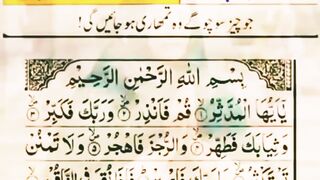 جو چیز سوچو گے وہ تمھاری ہو جائیں گی!
بِسْمِ اللهِ الرَّحْمٰنِ الرَّحِيْمِ
يٰۤاَيُّهَا الْمُدَّثِّرُ ۙ﴿۱﴾ قُمْ فَاَنْذِرْ ۙ﴿۲﴾ وَرَبَّكَ فَكَبِّرْ ۙ﴿۳﴾
وَثِيَابَكَ فَطَهِّرْ ۙ﴿۴﴾ وَالرُّجْزَ فَاهْجُرْ ۙ﴿۵﴾ وَلَا تَمْنُنْ